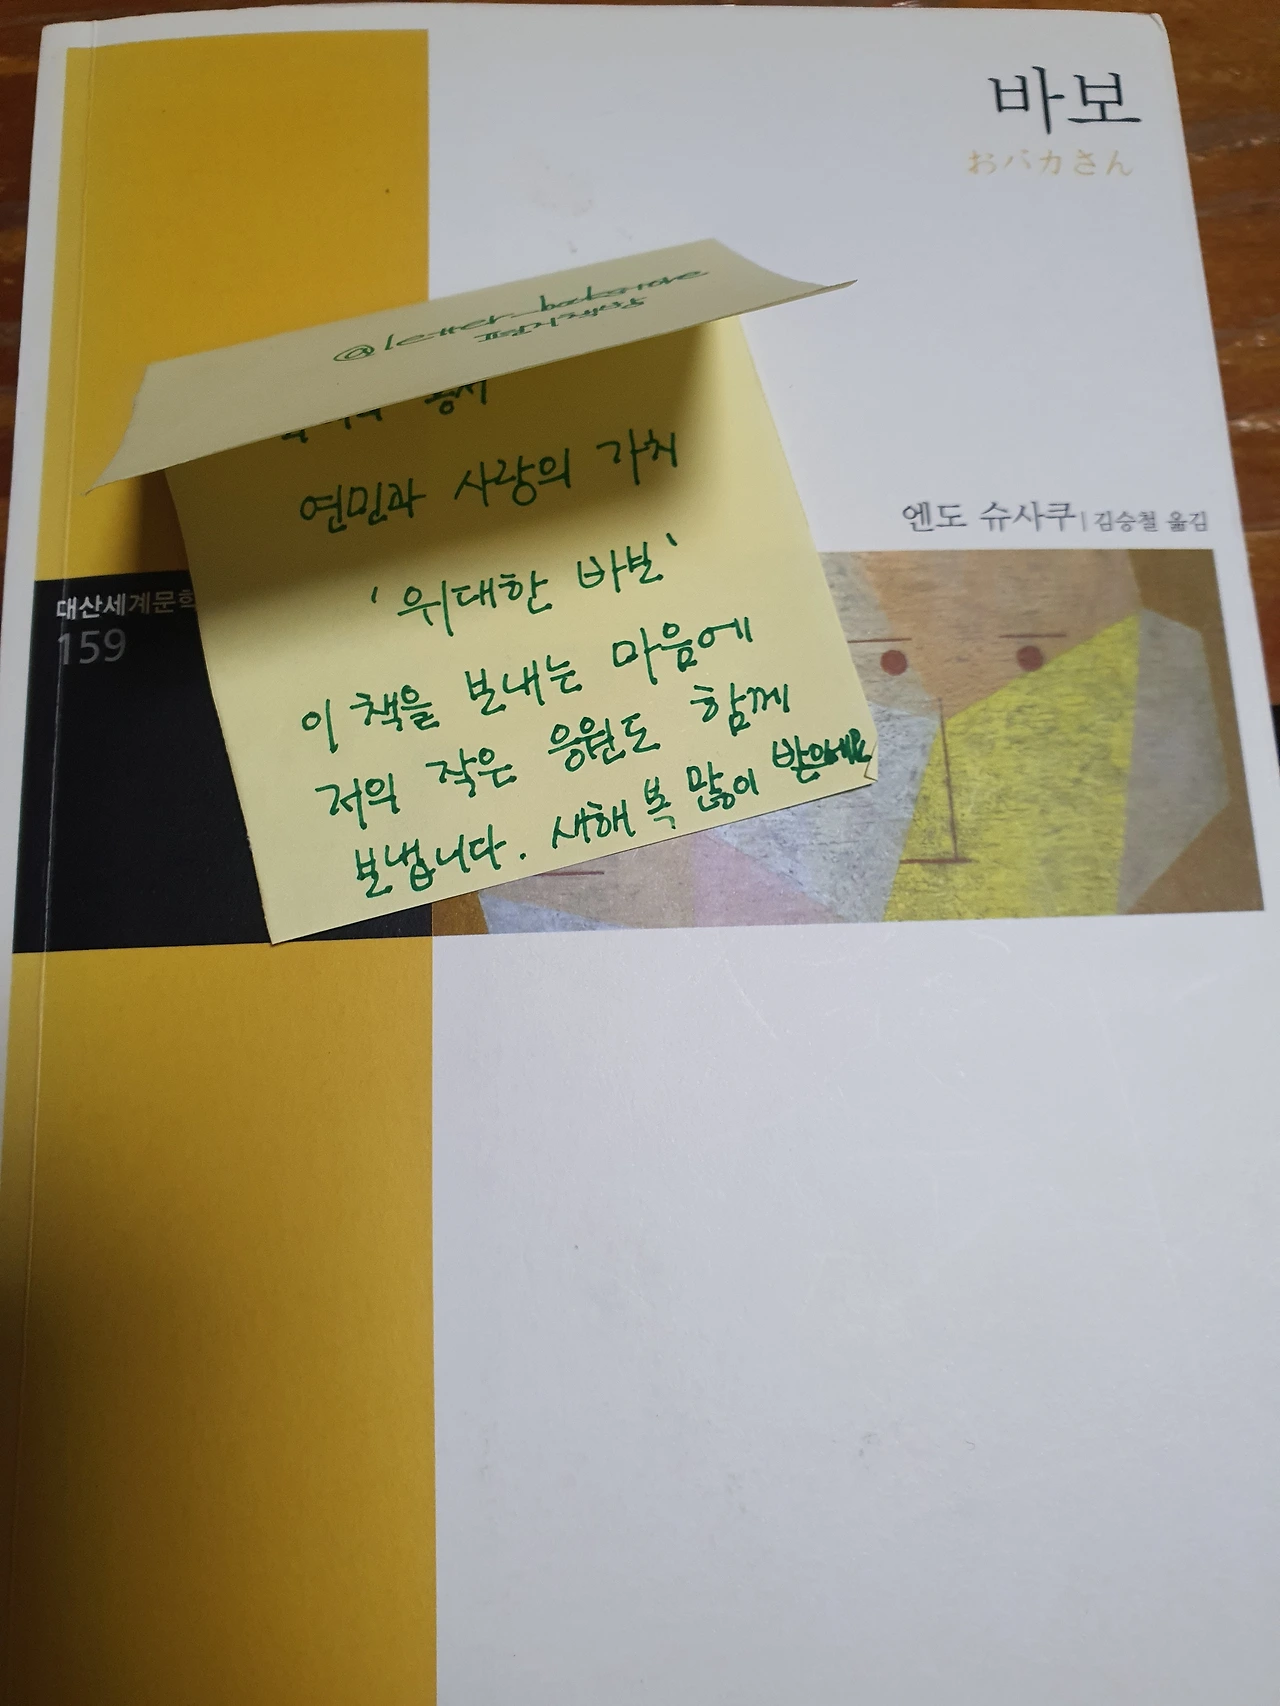 바보
おバカさん
@letter_bookstore
편지책방
용서
연민과 사랑의 가치
'위대한 바보'
이 책을 보내는 마음에
저의 작은 응원도 함께
보냅니다. 새해 복 많이 받으세요
엔도 슈사쿠 | 김승철 옮김
대산세계문학
159